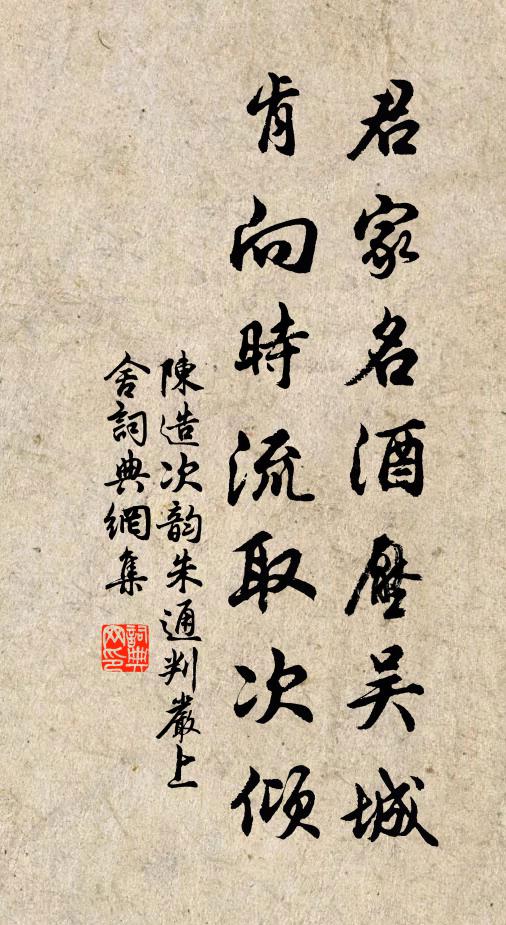 君家名酒壓吴城
肯向時流取次傾
陳造次韵朱通判嚴上
舍詞典網集
詞典网印